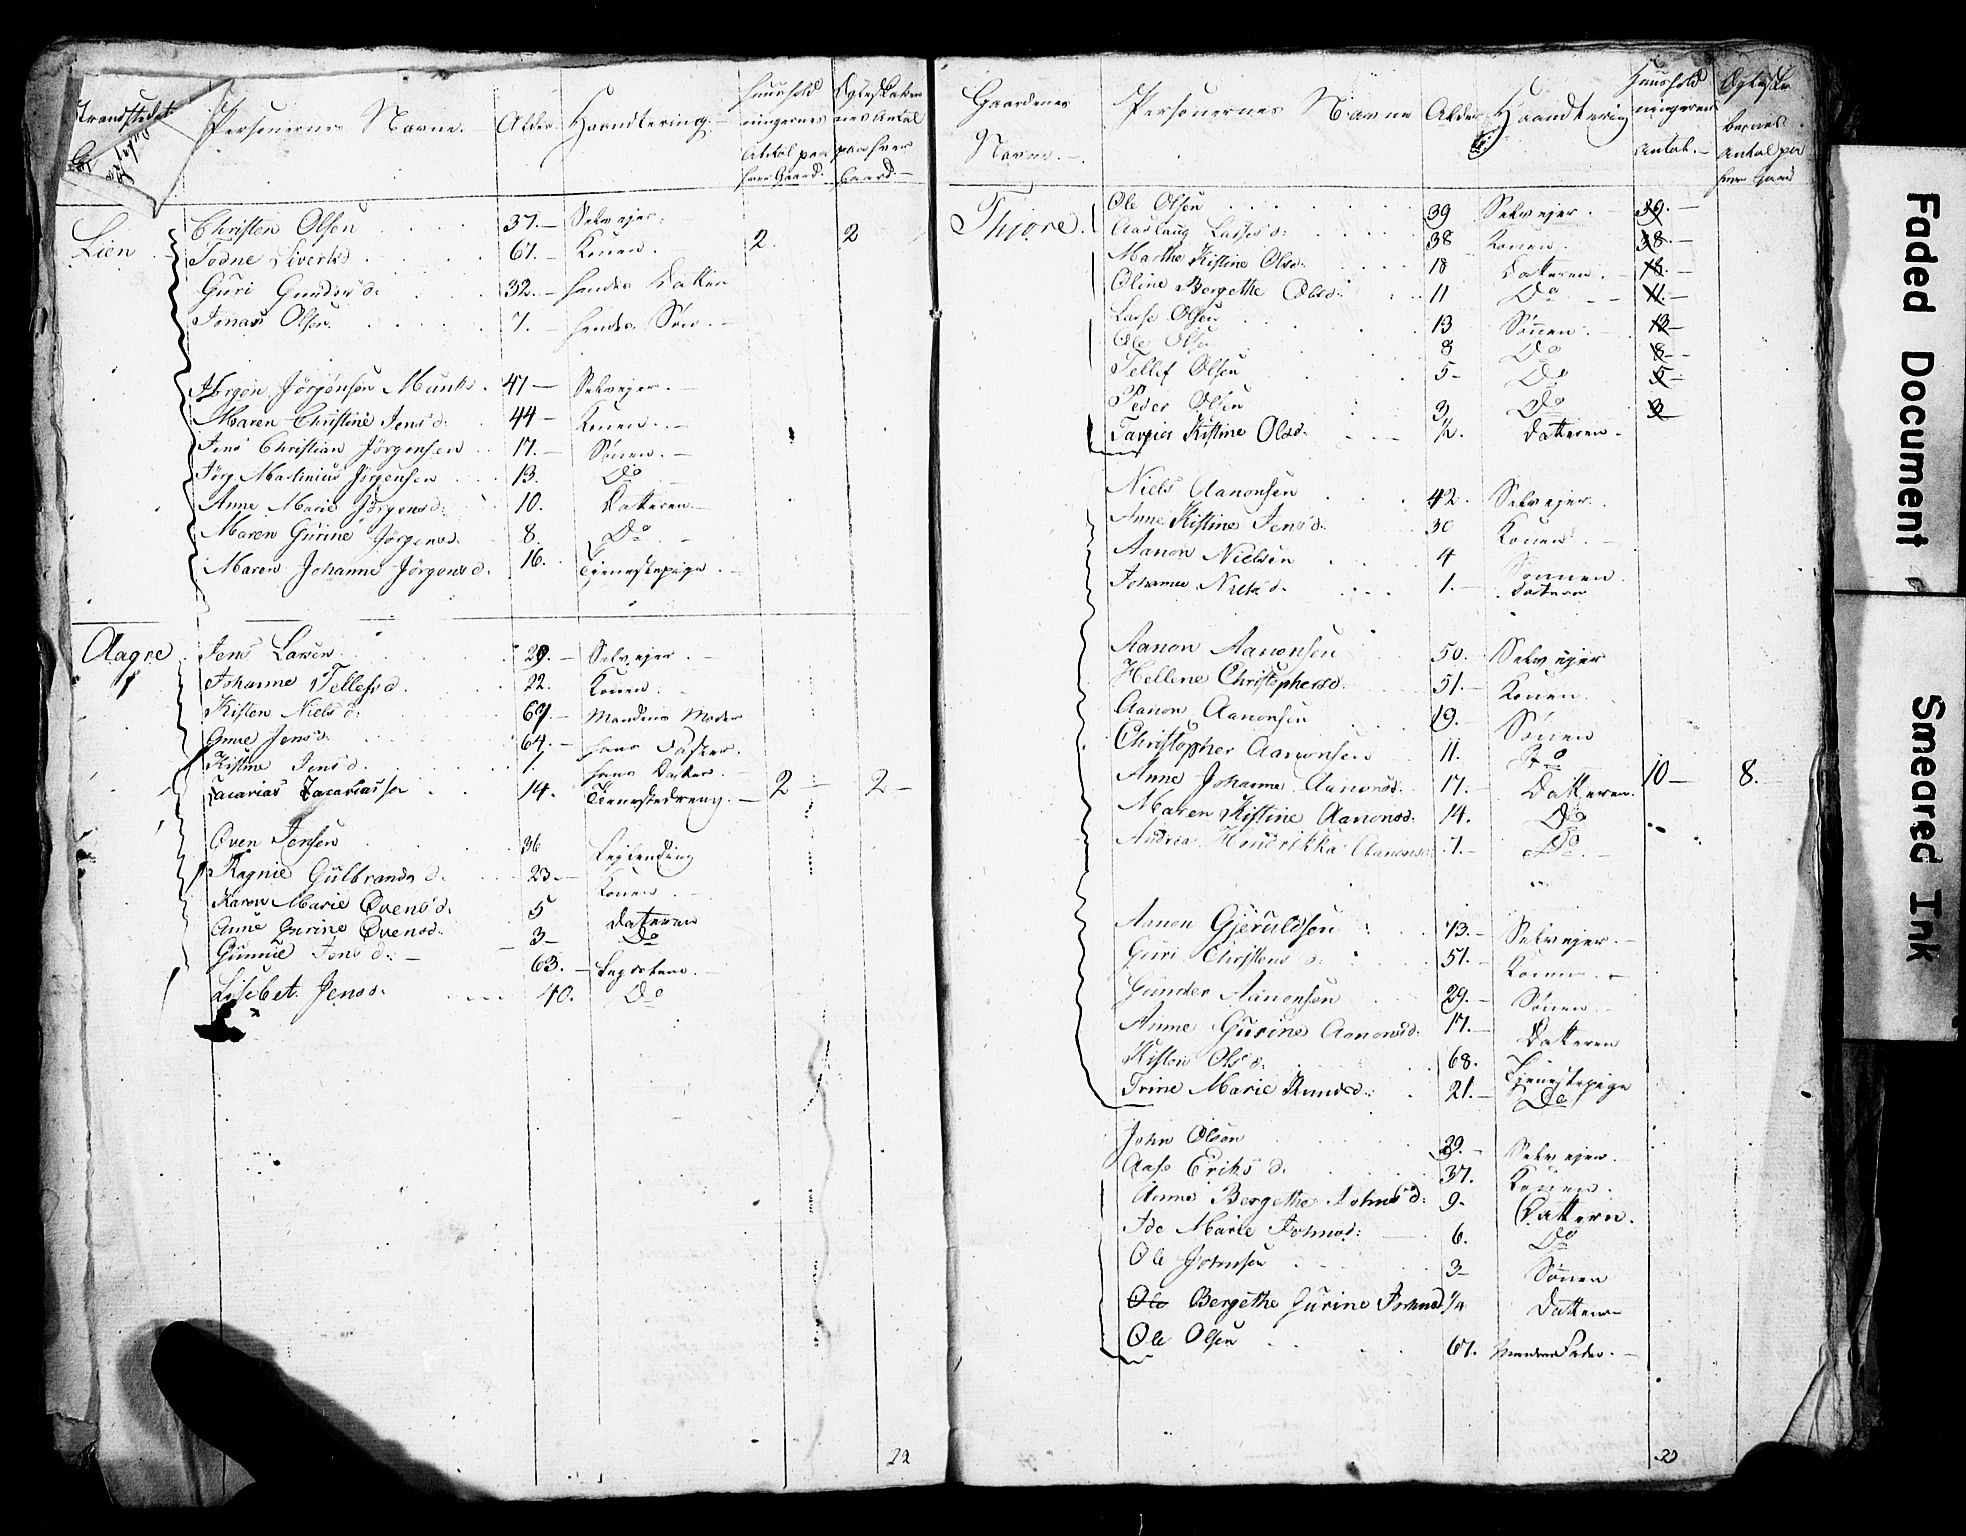 Personernes Navne. Alder Haandtering. Huushold ningernes Antal paa hver Gaard. Antal paa hver Gaard
Lien Christen Olsen 37. Selvejer. 2. 2
Todne Sivertsd 67. Konen.
Guri Gundersd: 32. hendes Datter
Jonas Olsen. 7. hendes Søn.
Jörgen Jörgensen Munk. 47 Selvejer.
Maren Christine Jensd: 44 Konen.
Jens Christian Jörgensen 17. Sønen.
Jörg. Matinius Jörgensen 13. Do
Anne Marie Jörgensd: 10. Datteren
Maren Gurine Jörgensd. 8. Do
Maren Johanne Jörgensd. 16. Tjenestepige.
Aagre Jens Larsen. 29. Selvejer. 2 2
Johanne Tellefsd. 22. Konen.
Kisten Nielsd: 67. Mandens Moder
Anne Jensd. 64. hans Søster.
Kistine Jensd. 1. hans Datter.
Zacarias Zacariassen 14. Tjenestedreng.
Oven Jensen 36 Lejlending
Ragnie Gulbrandsd. 23. Konen.
Karen Marie Ovensd. 5 Datteren
Anne Gurine Ovensd. 3 Do
Gunnie Jensd. 63. Legdslem.
Lisebet Jensd. 40. Do
22
Gaardenes Navne. Personernes Navne Alder Haandtering Huushold ningernes Antal. Antal paa hver Gaard
Thjøre. Ole Olsen 39 Selvejer. 39.
Aaslaug Lassesd: 38 Konen. 38.
Marthe Kistine Olsd. 18 Datteren. 18.
Oline Bergethe Olsd: 11 Do 11.
Lasse Olsen 13 Sönen. 13
Ole Olsen 8 Do 8
Tellef Olsen 5 Do 5
Peder Olsen 3 Do 3
Kistine Olsd. ½. Datteren.
Niels Aanonsen 42. Selvejer.
Anne Kistine Jensd. 30 Konen.
Aanon Nielsen 4 Sönnen.
Johanne Nielsd. 1. Datteren
Aanon Aanonsen 50. Selvejer
Hellene Christophersd. 51. Konen.
Aanon Aanonsen 19. Sönen
Christopher Aanonsen 11. Do
Anne Johanne Aanonsd. 17. Datteren. 10 8.
Maren Kistine Aanonsd. 14. Do
Andrea Hendrikka Aanonsd. 7. Do
Aanon Gjeruldsen 73. Selvejer.
Guri Christensd: 51. Konen.
Gunder Aanonsen 29. Sönen.
Anne Gurine Aanonsd: 17. Datteren
Kisten Olsd. 68. Tjenestepige
Trine Marie Knudsd: 21. Do
John Olsen 39. Selvejer.
Aase Eriksd. 37. Konen.
Anne Bergethe Johnsd: 9. Dattern.
Ide Marie Johnsd: 6. Do
Ole Johnsen 3 Sönen
Ole Bergethe Gurine Johnsd ¼ Datteren
Ole Olsen 67. Mandens Fader.
Faded Document
Smeared Ink